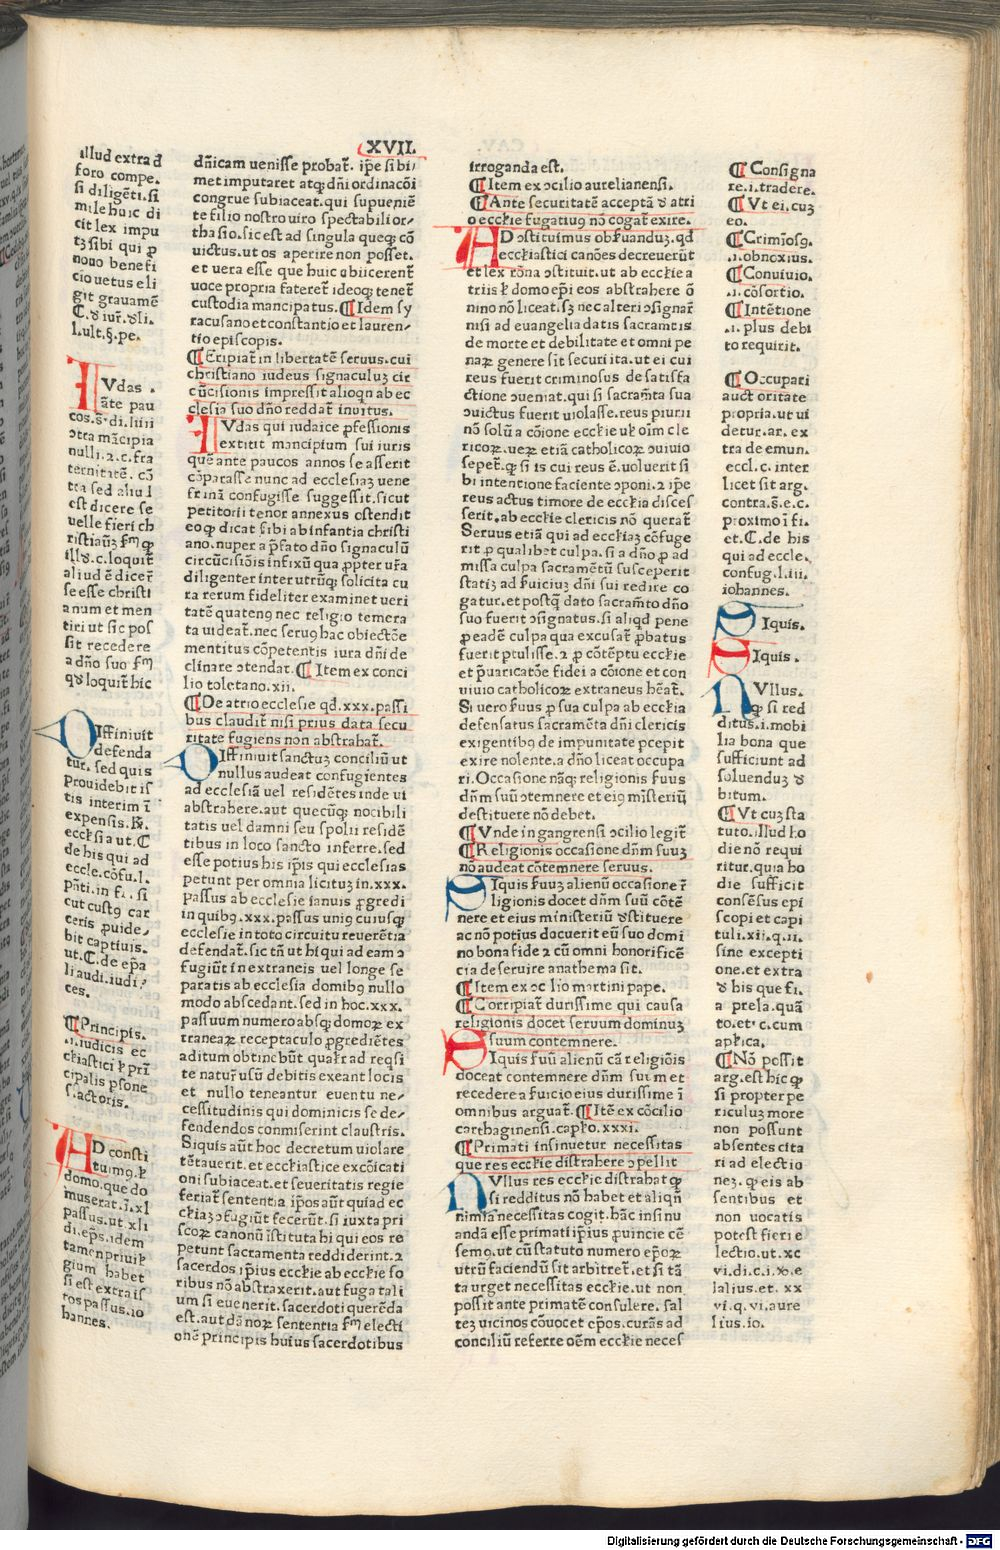 XVII.
illud extra d
foro compe.
si diligēti. si
mile huic di
cit lex impu
tꝫ sibi qui ꝓ
nouo benefi
cio uetus eli
git grauamē
C. ꝺ iur̄. ꝺli.
l. ult. §. pe.
IVdas .
āte pau
cos. §. di. liiii
ↄtra mācipia
nulli. 2. c. fra
ternitatē. cō
tra sed aliud
est dicere se
uelle fieri ch
ristiāuꝫ
illꝺ. c. loquit̄
aliud ē dicer̄
se esse christi
anum et men
tiri ut sic pos
sit recedere
a dño suo
qꝺ loquit̄ hic
DIffiniuit
defenda
tur. sed quis
prouidebit is
tis interim ī
expensis. R̄.
ecclsia aut. C
de his qui ad
eccle. cōfu. l.
p̄nti. in fi. si
cut custꝯ car
ceris ꝓuide,
bit captiuis.
ut. C. de ep̄a
li audi. iudi?
ces.
¶ Principis.
.i. iudicis ec
cłiastici ł prī
cipalis ꝑsone
s. actoris.
AD consti
tuimꝯ. ł
domo. que do
muserat. ī. xl
passus. ut xłi
di. ep̄s. idem
tamen priuił
gium habet
si est extra is
tos passus. io
hannes.
dñicam uenisse probat̄. ip̄e sibi,
met imputaret atqꝫ dñi ordinacōi
congrue subiaceat. qui supueniē
te filio nostro uiro spectabilior,
tha sio. sic est ad singula queqꝫ cō
uictus. ut os aperire non posset.
et uera esse que huic abiicerent̄
uoce propria fateret̄ ideoqꝫ tenet̄
custodia mancipatus. ¶ Idem sy
racusano et constantio et lauren,
tio episcopis.
¶ Eripiat̄ in libertatē seruus. cui
christiano iudeus signaculuꝫ cir
cūcisionis impressit alioqn ab ec
clesia suo dño reddat̄ inuitus.
IVdas qui iudaice ꝓfessionis
extitit mancipium sui iuris
quē ante paucos annos se asserit
cōparasse nunc ad ecclesiaꝫ uene
frinā confugisse suggessit. sicut
petitorii tenor annexus ostendit
eo ꝙ dicat sibi ab infantia christi
ano. nuper a p̄fato dño signaculū
circūcisiōis infixū qua ꝓpter ur̄a
diligenter inter utrūqꝫ solicita cu
ra rerum fideliter examinet ueri
tatē quatenꝯ nec religio temera
ta uideat̄. nec seruꝯ hac obiectōe
mentitus cōpetentis iura dñi de
clinare ↄtendat. ¶ Item ex conci
lio toletano. xii.
¶ De atrio ecclesie qd. xxx. passi
bus claudit̄ nisi prius data secu
ritate fugiens non abstrahat̄.
DIffiniuit sanctuꝫ conciliū ut
nullus audeat confugientes
ad ecclesiā uel residētes inde ui
abstrahere. aut quecūqꝫ nocibili
tatis uel damni seu spolii residē
tibus in loco sancto inferre. sed
esse potius his ip̄is qui ecclesias
petunt per omnia licituꝫ in. xxx.
passus ab ecclesie ianuis ꝓgredi
in quibꝯ. xxx. passus uniꝯ cuiusqꝫ
ecclesie in toto circuitu reuerētia
defendat̄. sic tn̄ ut hi qui ad eam ↄ
fugiūt in extraneis uel longe se
paratis ab ecclesia domibꝯ nullo
modo abscedant. sed in hoc. xxx.
passuum numero absqꝫ domoꝝ ex
traneaꝝ receptaculo ꝓgrediētes
aditum obtinebūt qualr̄ ad reqsi
te natur̄ usū debitis exeant locis
et nullo teneantur euentu ne,
cessitudinis qui dominicis se de,
fendendos commiserint claustris.
Siquis aūt hoc decretum uiolare
tētauerit. et eccłiastice excōicati
oni subiaceat. et seueritatis regie
feriat̄ sententia ip̄os aūt quiad ec
cłiaꝫ ↄfugiūt fecerūt. si iuxta pri
scoꝝ canonū īstituta hi qui eos re
petunt sacramenta reddiderint. 2
sacerdos ip̄ius eccłie ab eccłie fo
ribus nō abstraxerit. aut fuga tali
um si euenerit. sacerdoti querēda
est. aut dānoꝝ sententia electi
onē principis huius sacerdotibus
irroganda est.
¶ Item ex ↄcilio aurelianensi.
¶ Ante securitatē acceptā ꝺ atri
o eccłie fugatiuꝯ nō cogat̄ exire.
AD ↄstituimus obs̄uanduꝫ. qd
eccłiastici canōes decreuerūt
et lex rōna ↄstituit. ut ab eccłie a
triis ł domo ep̄i eos abstrahere ō
nino nō liceat. sꝫ nec alteri ↄsignar̄
nisi ad euangelia datis sacramētis
de morte et debilitate et omni pe
naꝝ genere sit securi ita. ut ei cui
reus fuerit criminosus de satisfa
ctione ↄueniat. qui si sacram̄ta sua
ↄuictus fuerit uiolasse. reus ꝑiurii
nō solū a cōione eccłie uł oīm cle
ricoꝝ. ueꝝ etiā catholicoꝝ ↄuiuio
sepet̄. ꝙ si is cui reus ē. uoluerit si
bi intentione faciente ↄponi. 2 ip̄e
reus actus timore de eccłia disces
serit. ab eccłie clericis nō querat̄
Seruus etiā qui ad eccłiaꝫ cōfuge
rit ꝓ qualibet culpa. si a dño ꝓ ad
missa culpa sacramētū susceperit
statiꝫ ad s̄uiciuꝫ dñi sui redire co
gatur. et postqꝫ dato sacram̄to dño
suo fuerit ↄsignatus. si aliqd pene
ꝓ eadē culpa qua excusat̄ ꝓbatus
fuerit ptulisse. 2 ꝓ cōtēptu eccłie
et p̄uaricatōe fidei a cōione et con
uiuio catholicoꝝ extraneus hēat̄.
Si uero s̄uus ꝓ sua culpa ab eccłia
defensatus sacramēta dñi clericis
exigentibꝯ de impunitate pcepit
exire nolente. a dño liceat occupa
ri. Occasione nāqꝫ religionis s̄uus
dñm suū ↄtemnere et eiꝯ misteriū
destituere nō debet.
¶ Vnde in gangrensi ↄcilio legit̄
¶ Religionis occasione dñm suuꝫ
nō audeat cōtemnere seruus.
SIquis s̄uuꝫ alienū occasione r̄
ligionis docet dñm suū cōtē
nere et eius ministeriū ꝺstituere
ac nō potius docuerit eū suo domi
no bona fide 2 cū omni honorificē
cia deseruire anathema sit.
¶ Item ex ↄc lio martini pape.
¶ Corripiat̄ durissime qui causa
religionis docet seruum dominuꝫ
suum contemnere.
SIquis s̄uū alienū cā religiōis
doceat contemnere dñm sut met
recedere a s̄uicio eius durissime ī
omnibus arguat̄. ¶ Itē ex cōcilio
carthaginensi. capło. xxxi.
¶ Primati insinuetur necessitas
que res eccłie distrahere ↄpellit
NVllus res eccłie distrahat ꝙ
si redditus nō habet et aliqn̄
nimia necessitas cogit. hāc insinu
andā esse primati ip̄ius ꝓuincie cē
semꝯ. ut cū statuto numero ep̄oꝝ
utrū faciendū sit arbitret̄. et si tā
ta urget necessitas eccłie. ut non
possit ante primatē consulere. sal
teꝫ uicinos cōuocet ep̄os. curās ad
conciliū referre oēm eccłie neces
¶ Consigna
re. i. tradere.
¶ Vt ei. cuꝫ
eo.
¶ Crimīosꝯ.
.i. obnoxius.
¶ Conuiuio.
.i. cōsortio.
¶ Intētione
.i. plus debi
to requirit.
¶ Occupari
auct oritate
propria. ut ui
detur. ar. ex
tra de emun.
eccl. c. inter
licet sit arg.
contra. §. e. c.
proximo ī fi.
et. C. de his
qui ad eccle.
confug. l. iii.
iohannes.
SIquis.
SIquis.
NVllus.
ꝙ si red
ditus. i. mobi
lia bona que
sufficiunt ad
soluenduꝫ ꝺ
bitum.
¶ Vt cuꝫ sta
tuto. illud ho
die nō requi
ritur. quia ho
die sufficit
consēsus epi
scopi et capi
tuli. xii. q. ii.
sine excepti
one. et extra
ꝺ his que fi.
a prela. quā
to. et. c. cum
apłica.
¶ Nō possit
arg. est hic ꝙ
si propter pe
riculuꝫ more
non possunt
absentes cita
ri ad electio
neꝫ. ꝙ eis ab
sentibus et
non uocatis
potest fieri e
lectio. ut. xc
vi. di. c. i. ꝟ. e
lalius. et. xx
vi. q. vi. aure
lius. io.
Digitalisierung gefördert durch die Deutsche Forschungsgemeinschaft - DFG